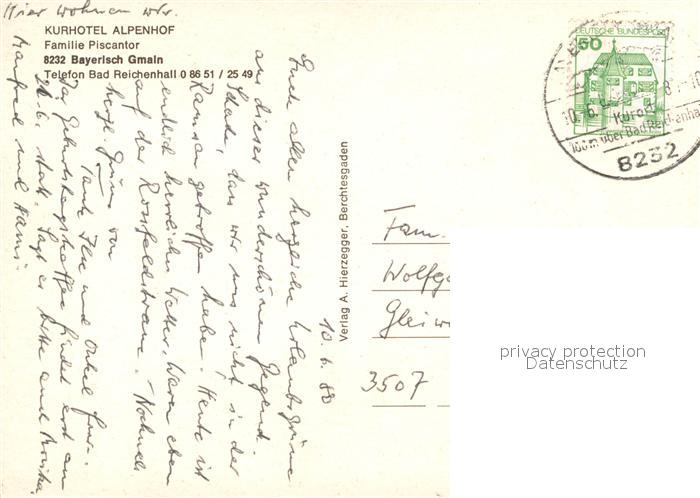 Hier wohnen wir.
KURHOTEL ALPENHOF
Familie Piscantor
8232 Bayerisch Gmain
Telefon Bad Reichenhall 0 86 51 / 25 49
10.6.80
Euch allen herzliche Urlaubsgrüße
aus dieser wunderschönen Gegend.
Schade, dass wir uns nicht in der
Ramsau getroffen haben. Heute ist
endlich herrliches Wetter. Waren eben
auf der Rossfeldstrasse. Nochmals
herzl. Grüsse von
Tante Ilse und Onkel
Das Geburtstagstreffen findet erst am
26.6. statt. Sagt es bitte auch Monika,
Manfred und Hanni.
Verlag A. Hierzegger, Berchtesgaden
DEUTSCHE BUNDESPOST
50
10.6.
Kurort
über Bad Reichenha
8232
Fam.
Wolfg
Gleiw
3507
privacy protection
Datenschutz